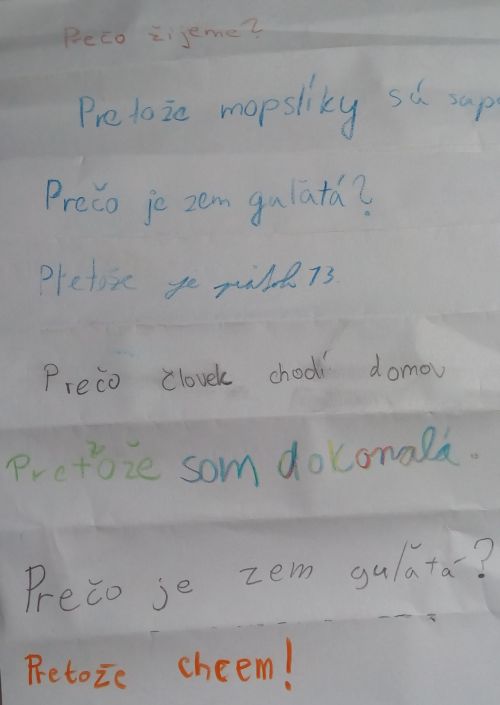 Prečo žijeme?
Pretože mopslíky sú
Prečo je zem gulätá?
Pretože je piatok 13.
Prečo človek chodí domov
Pretože som dokonalá.
Prečo je zem gulătá?
Pretože chcem!